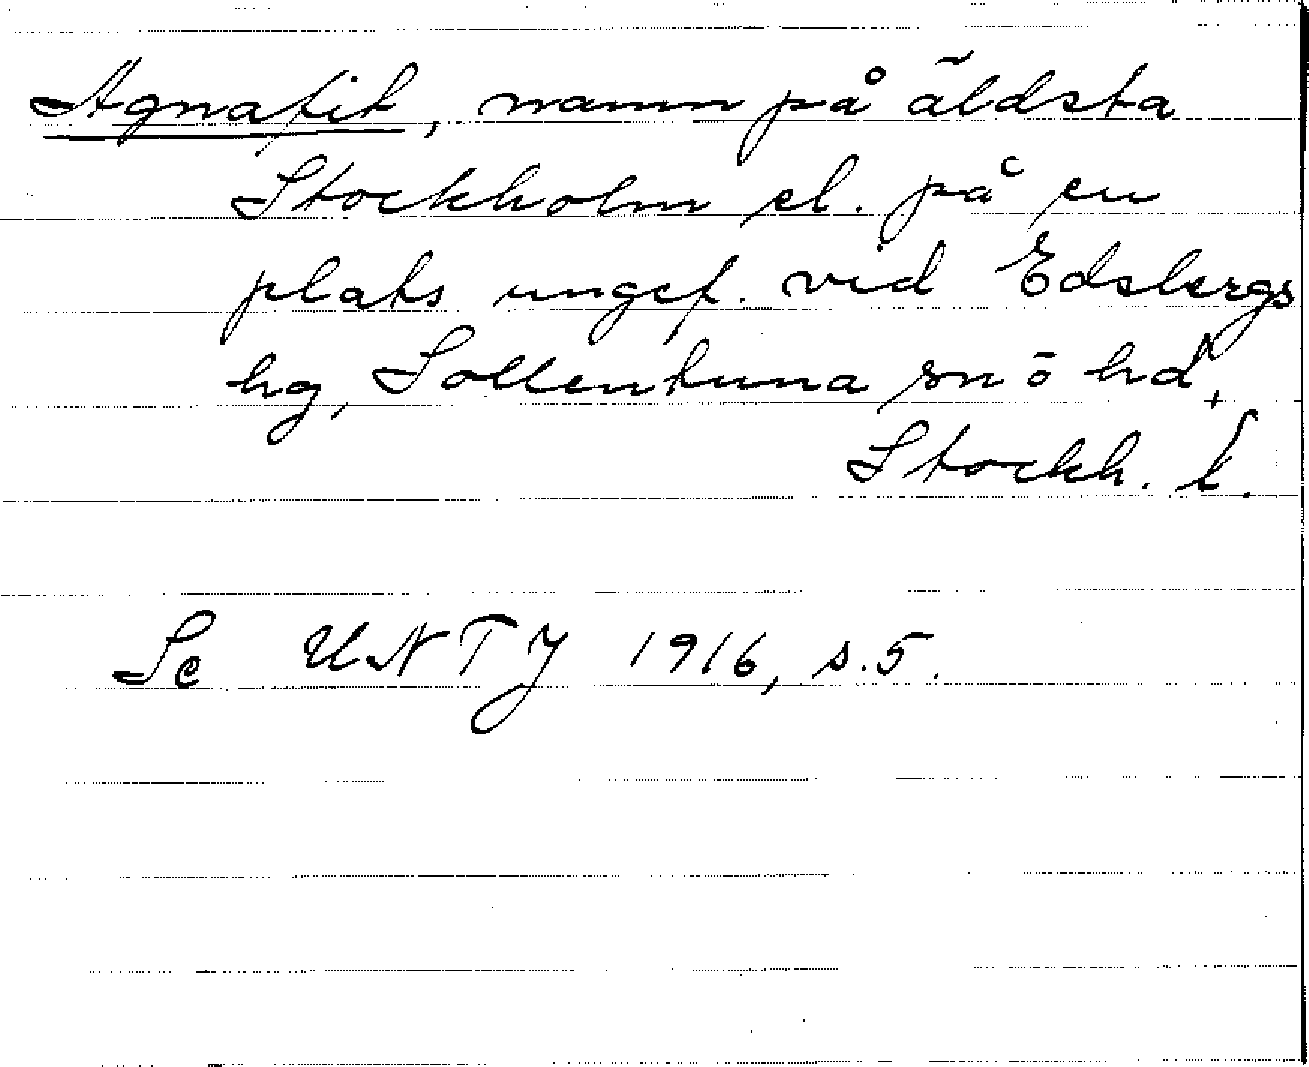 Agnafit, namn på äldsta
Stockholm el. på en
plats ungef. vid Edsbergs
hg, Sollentuna sn o hd,
Stockh. l.
Se UNTJ 1916, s.5.